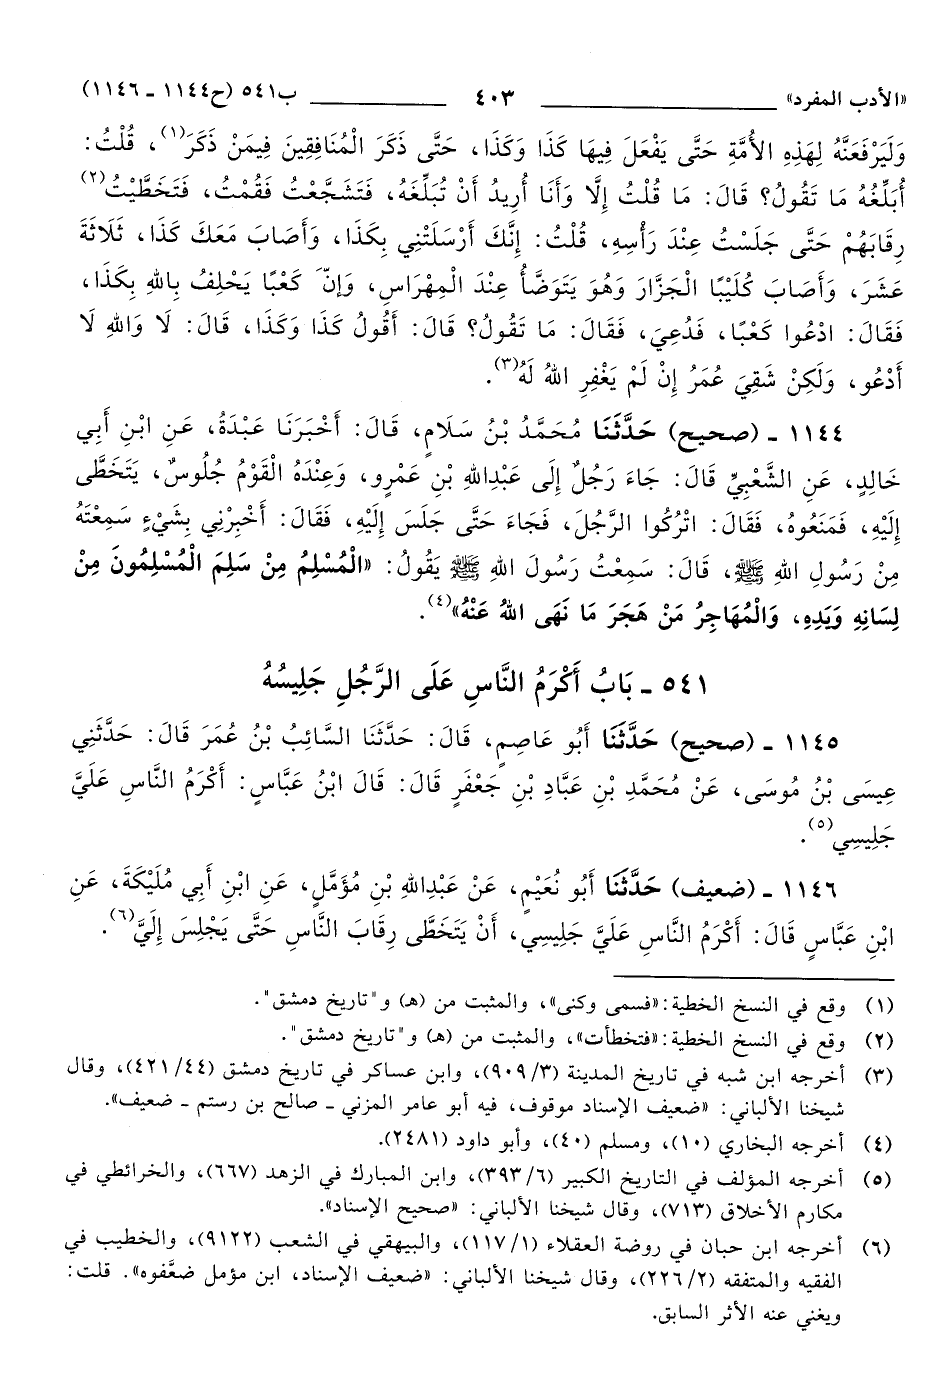 «الأدب المفرد» ٤٠٣ ب٥٤١ (ح١١٤٤ ـ ١١٤٦)
وَلَيَرْفَعَنَّهُ لِهَذِهِ الأُمَّةِ حَتَّى يَفْعَلَ فِيهَا كَذَا وَكَذَا، حَتَّى ذَكَرَ الْمُنَافِقِينَ فِيمَنْ ذَكَرَ(١)، قُلْتُ:
أُبَلِّغُهُ مَا تَقُولُ؟ قَالَ: مَا قُلْتُ إِلَّا وَأَنَا أُرِيدُ أَنْ تُبَلِّغَهُ، فَتَشَجَّعْتُ فَقُمْتُ، فَتَخَطَّيْتُ(٢)
رِقَابَهُمْ حَتَّى جَلَسْتُ عِنْدَ رَأْسِهِ، قُلْتُ: إِنَّكَ أَرْسَلْتَنِي بِكَذَا، وَأَصَابَ مَعَكَ كَذَا، ثَلَاثَةَ
عَشَرَ، وَأَصَابَ كُلَيْبًا الْجَزَّارَ وَهُوَ يَتَوَضَّأُ عِنْدَ الْمِهْرَاسِ، وَإِنَّ كَعْبًا يَحْلِفُ بِاللهِ بِكَذَا،
فَقَالَ: ادْعُوا كَعْبًا، فَدُعِيَ، فَقَالَ: مَا تَقُولُ؟ قَالَ: أَقُولُ كَذَا وَكَذَا، قَالَ: لَا وَاللهِ لَا
أَدْعُو، وَلَكِنْ شَقِيَ عُمَرُ إِنْ لَمْ يَغْفِرِ اللهُ لَهُ(٣).
١١٤٤ ـ (صحيح) حَدَّثَنَا مُحَمَّدُ بْنُ سَلَامٍ، قَالَ: أَخْبَرَنَا عَبْدَةُ، عَنِ ابْنِ أَبِي
خَالِدٍ، عَنِ الشَّعْبِيِّ قَالَ: جَاءَ رَجُلٌ إِلَى عَبْدِاللهِ بْنِ عَمْرٍو، وَعِنْدَهُ الْقَوْمُ جُلُوسٌ، يَتَخَطَّى
إِلَيْهِ، فَمَنَعُوهُ، فَقَالَ: اتْرُكُوا الرَّجُلَ، فَجَاءَ حَتَّى جَلَسَ إِلَيْهِ، فَقَالَ: أَخْبِرْنِي بِشَيْءٍ سَمِعْتَهُ
مِنْ رَسُولِ اللهِ ﷺ، قَالَ: سَمِعْتُ رَسُولَ اللهِ ﷺ يَقُولُ: «الْمُسْلِمُ مِنْ سَلِمَ الْمُسْلِمُونَ مِنْ
لِسَانِهِ وَيَدِهِ، وَالْمُهَاجِرُ مَنْ هَجَرَ مَا نَهَى اللهُ عَنْهُ»(٤).
٥٤١ ـ بَابُ أَكْرَمُ النَّاسِ عَلَى الرَّجُلِ جَلِيسُهُ
١١٤٥ ـ (صحيح) حَدَّثَنَا أَبُو عَاصِمٍ، قَالَ: حَدَّثَنَا السَّائِبُ بْنُ عُمَرَ قَالَ: حَدَّثَنِي
عِيسَى بْنُ مُوسَى، عَنْ مُحَمَّدِ بْنِ عَبَّادِ بْنِ جَعْفَرٍ قَالَ: قَالَ ابْنُ عَبَّاسٍ: أَكْرَمُ النَّاسِ عَلَيَّ
جَلِيسِي(٥).
١١٤٦ ـ (ضعيف) حَدَّثَنَا أَبُو نُعَيْمٍ، عَنْ عَبْدِاللهِ بْنِ مُؤَمَّلٍ، عَنِ ابْنِ أَبِي مُلَيْكَةَ، عَنِ
ابْنِ عَبَّاسٍ قَالَ: أَكْرَمُ النَّاسِ عَلَيَّ جَلِيسِي، أَنْ يَتَخَطَّى رِقَابَ النَّاسِ حَتَّى يَجْلِسَ إِلَيَّ(٦).
(١) وقع في النسخ الخطية: «فسمى وكنى»، والمثبت من (هـ) و"تاريخ دمشق".
(٢) وقع في النسخ الخطية: «فتخطأت»، والمثبت من (هـ) و"تاريخ دمشق".
(٣) أخرجه ابن شبه في تاريخ المدينة (٣/ ٩٠٩)، وابن عساكر في تاريخ دمشق (٤٤/ ٤٢١)، وقال
شيخنا الألباني: «ضعيف الإسناد موقوف، فيه أبو عامر المزني ـ صالح بن رستم ـ ضعيف».
(٤) أخرجه البخاري (١٠)، ومسلم (٤٠)، وأبو داود (٢٤٨١).
(٥) أخرجه المؤلف في التاريخ الكبير (٦/ ٣٩٣)، وابن المبارك في الزهد (٦٦٧)، والخرائطي في
مكارم الأخلاق (٧١٣)، وقال شيخنا الألباني: «صحيح الإسناد».
(٦) أخرجه ابن حبان في روضة العقلاء (١/ ١١٧)، والبيهقي في الشعب (٩١٢٢)، والخطيب في
الفقيه والمتفقه (٢/ ٢٢٦)، وقال شيخنا الألباني: «ضعيف الإسناد، ابن مؤمل ضعَّفوه». قلت:
ويغني عنه الأثر السابق.